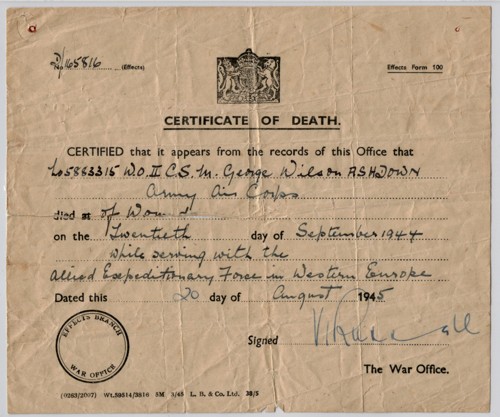 D/165816
No. (Effects)
Effects Form 100
CERTIFICATE OF DEATH.
CERTIFIED that it appears from the records of this Office that
No 5883315 W.O. II C.S.M. George Wilson ASHDOWN
Army Air Corps
died at of Wounds
on the Twentieth day of September 1944
while serving with the
Allied Expeditionary Force in Western Europe
Dated this 20 day of August 1945
Signed
The War Office.
EFFECTS BRANCH
WAR OFFICE
(0283/2007) Wt.59514/3816 5M 3/45 L. B. & Co. Ltd. 38/5